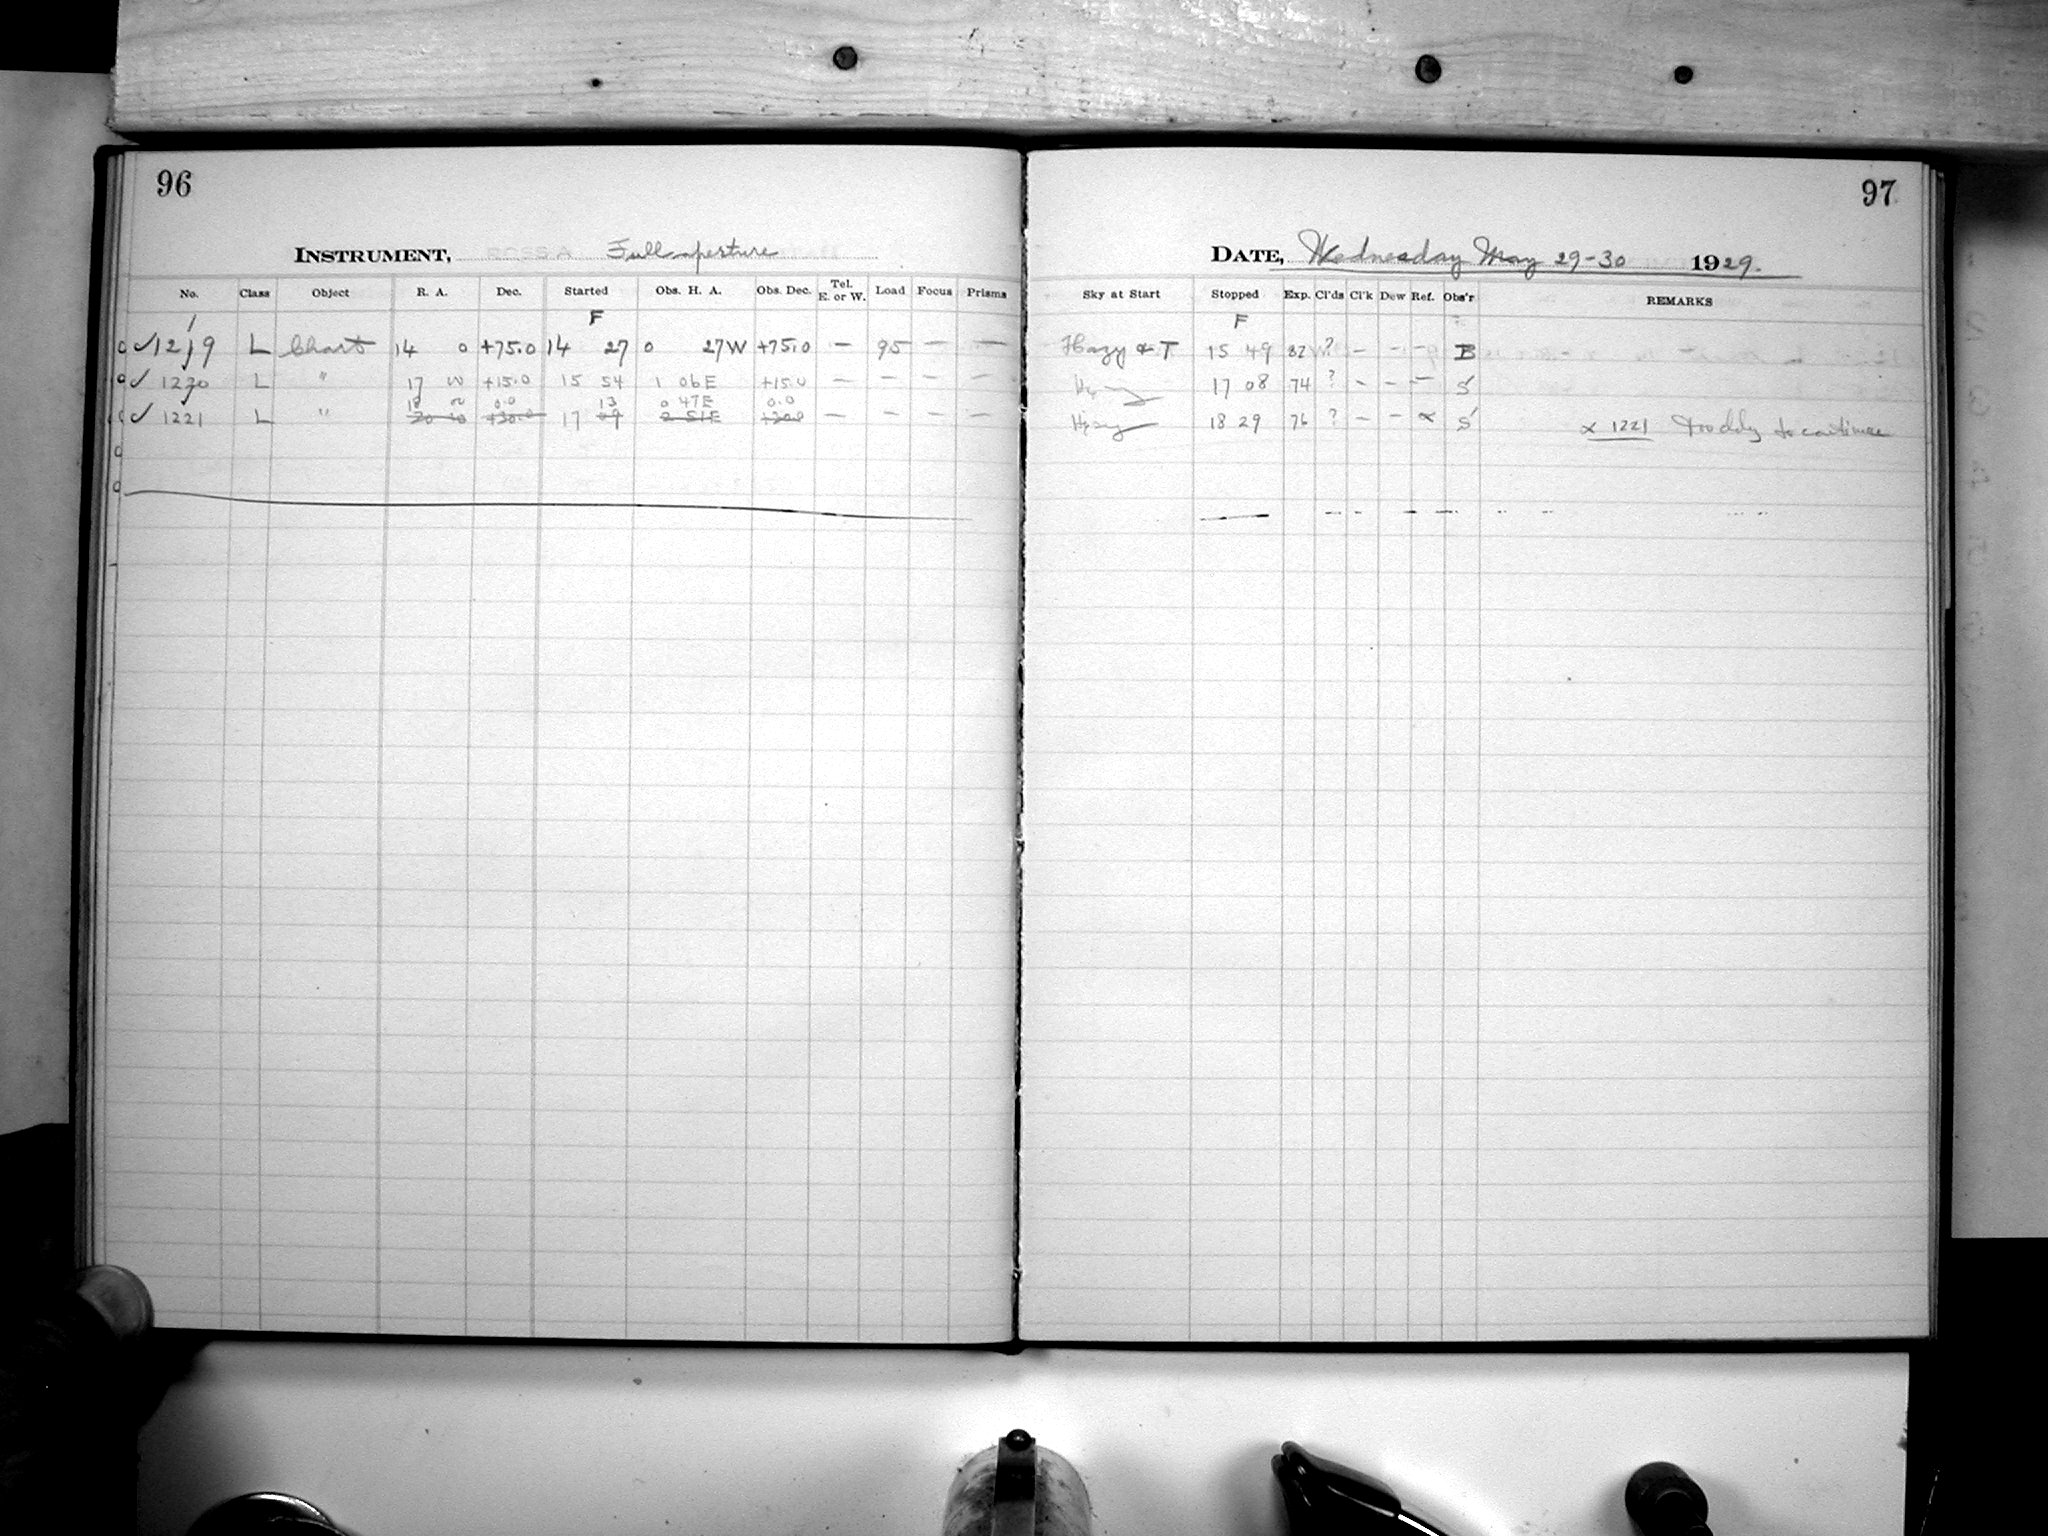 96
97
INSTRUMENT, ROSS A Full aperture
DATE, Wednesday May 29-30 1929.
No. Class Object R. A. Dec. Started Obs. H. A. Obs. Dec. Tel. E. or W. Load Focus Prisms Sky at Start Stopped Exp. Cl'ds Cl'k Dew Ref. Obs'r REMARKS
F F
✓1219 L Chart 14 0 +75.0 14 27 0 27W +75.0 — 95 — — Hazy & T 15 49 82 ? — — — B
✓ 1220 L " 17 00 +15.0 15 54 1 06E +15.0 — — — — Hy 17 08 74 ? — — — S
18 00 0.0 13 0 47E 0.0
✓ 1221 L " 20 00 +30.0 17 09 2 51E +30.0 — — — — Hazy 18 29 76 ? — — x S x 1221 to continue